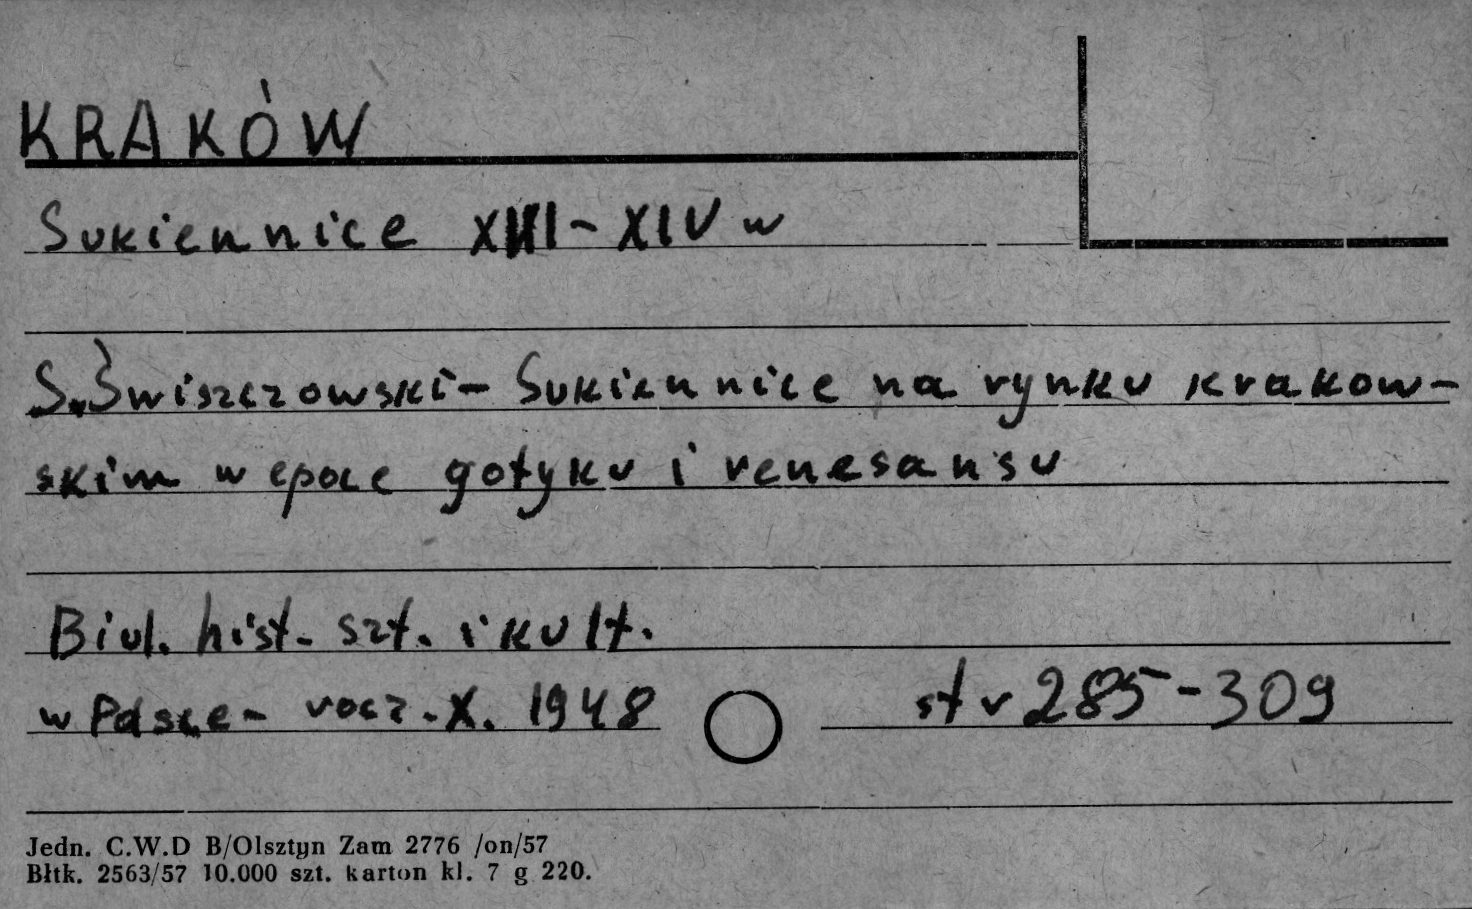 KRAKÓW
Sukiennice XIII-XIV w
S. Świszczowski - Sukiennice na rynku krakow-
skim w epoce gotyku i renesansu
Biul. hist. szt. i kult.
w Polsce - rocz. X. 1948 str 285-309
Jedn. C.W.D B/Olsztyn Zam 2776 /on/57
Błtk. 2563/57 10.000 szt. karton kl. 7 g 220.